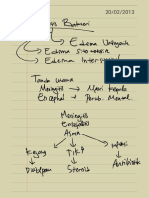 20/02/2013
Edema Vasogenik
Edema sitotoksik
Edema Interstisial
Tanda utama
Meningitis → Meni Kaudu
Encephal → Perub. Mental
Meningitis
Encephalitis
Kejang
↑TIK?
Diazepam
Steroid
Antibiotik